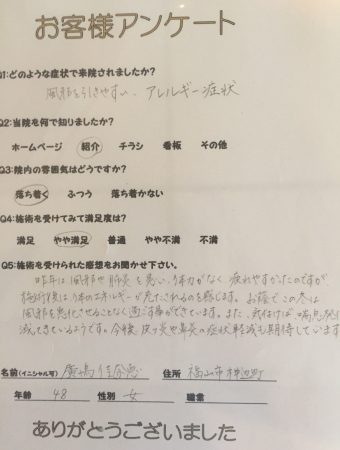 お客様アンケート
Q1:どのような症状で来院されましたか?
風邪を引きやすい、アレルギー症状
Q2:当院を何で知りましたか?
ホームページ 紹介 チラシ 看板 その他
Q3:院内の雰囲気はどうですか?
落ち着く ふつう 落ち着かない
Q4:施術を受けてみて満足度は?
満足 やや満足 普通 やや不満 不満
Q5:施術を受けられた感想をお聞かせ下さい。
昨年は風邪や肺炎を患い、体力がなく疲れやすかったのですが、
施術後は体のエネルギーが充たされるのを感じます。お蔭でこの冬は
風邪を悪化させることなく過ごす事ができています。また、気付けば、喘息発
減ってきているようです。今後、皮フ炎や鼻炎の症状軽減も期待しています
名前(イニシャル可) 住所 福山市神辺町
年齢 48 性別 女 職業
ありがとうございました